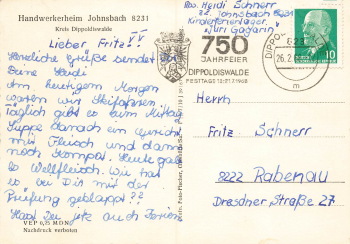 Handwerkerheim Johnsbach 8231
Kreis Dippoldiswalde
Lieber Fritz!
Herzliche Grüße sendet Dir
Deine Heidi
Am heutigem Morgen
waren wir Skifahren
Täglich gibt es beim Mittag
Suppe danach ein Gericht
mit Fleisch und dann
noch Kompot. Heute gab
es Wellfleisch. Wie hat
es bei Dir mit der
Prüfung geklappt??
Hast Du jetzt auch Ferien
VEP 0,25 MDN
Nachdruck verboten
Abs. Heidi Schnerr
Johnsbach
Kinderferienlager
"Juri Gagarin"
750
JAHRFEIER
DIPPOLDISWALDE
FESTTAGE 13.-21.7.1968
DIPPOLDIS
821
26.2.
m
10
Herrn
Fritz Schnerr
8222 Rabenau
Dresdner Straße 27